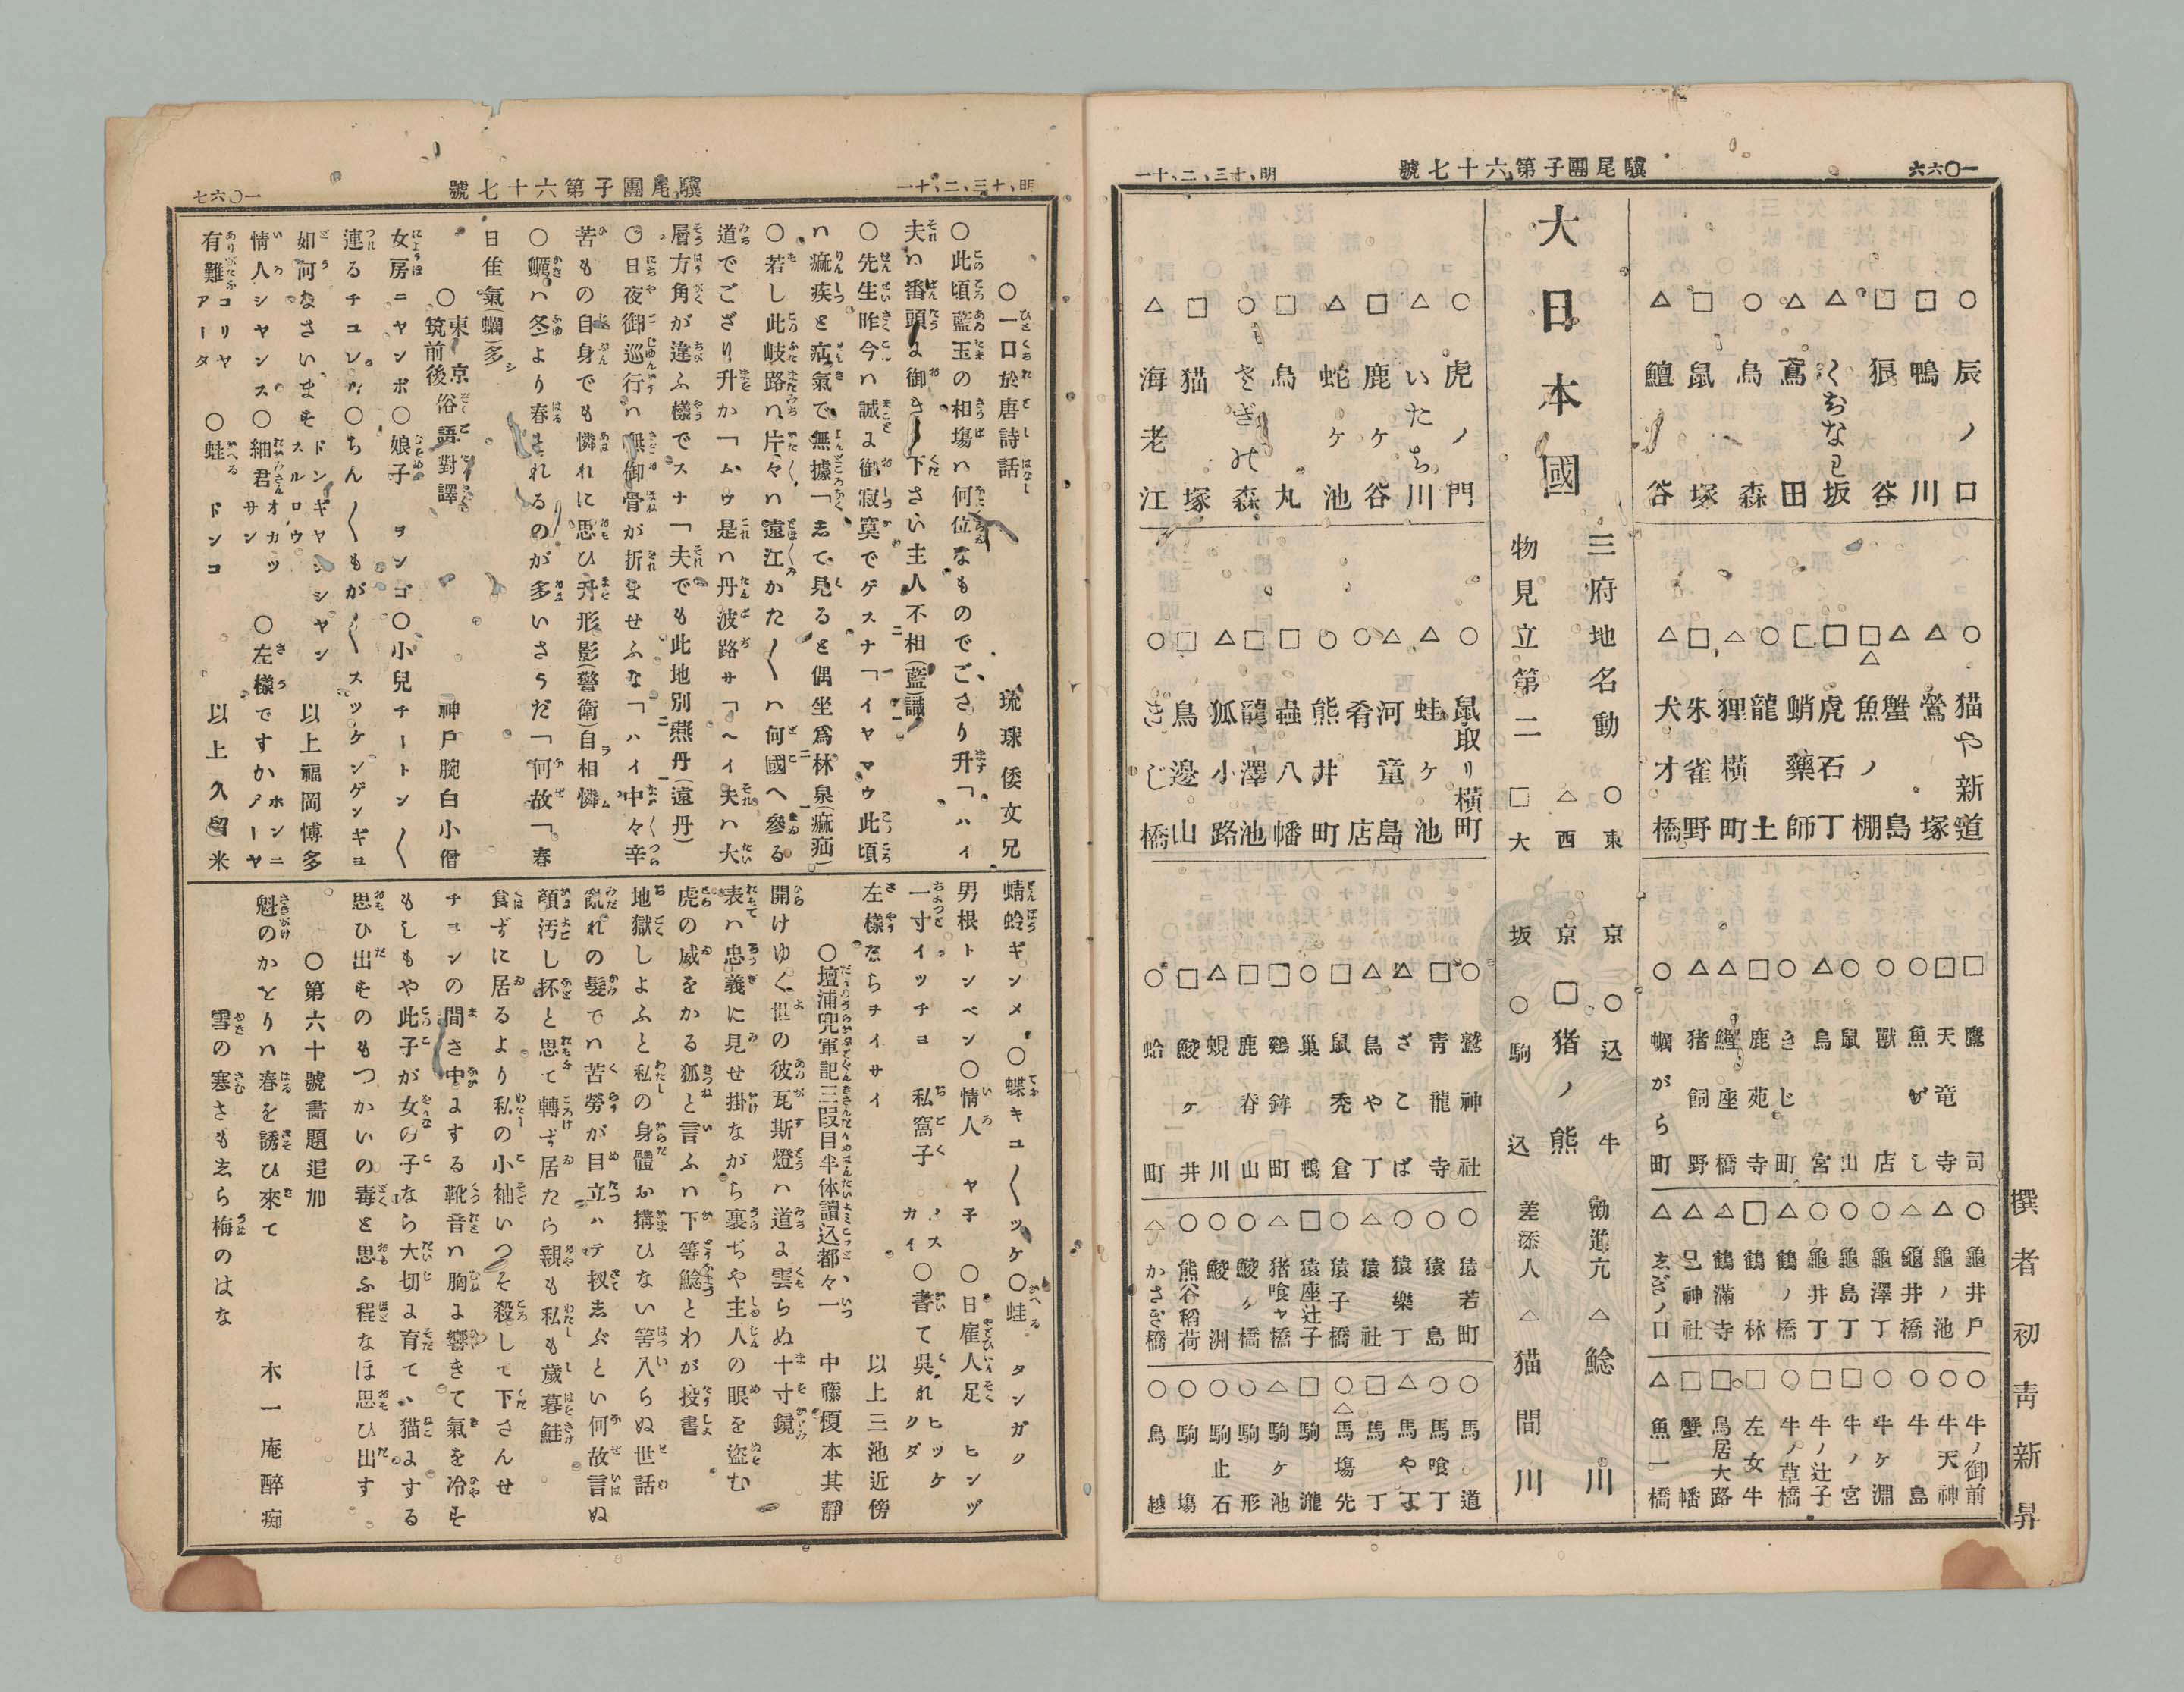 一〇六六
驥尾團子第六十七號
明、十三、二、十一
撰者 初靑新昇
○辰ノ口
□鴨川
□狼谷
△くちなハ坂
△鳶田
○烏森
□鼠塚
△鱣谷
○猫や新道
△鶯塚
△蟹島
□△魚ノ棚
□虎石丁
□蛸藥師
○龍土
△狸橫町
□朱雀野
△犬オ橋
□鷹司
□天竜寺
○魚がし
○獸店
○鼠山
△烏宮
○きじ町
□鹿苑寺
△鰹座橋
△猪飼野
○蠣がら町
○龜井戸
△龜ノ池
△龜井橋
○龜澤丁
○龜島丁
○龜井丁
△鶴ノ橋
□鶴林
△鶴滿寺
△巳神社
△ゑぎノ口
○牛ノ御前
○牛天神
○牛島
○牛ヶ淵
□牛ノ宮
□牛ノ辻子
○牛ノ草橋
□左女牛
□鳥居大路
□蟹幡
△魚一橋
大日本國
三府地名動
物見立第二
○東京
△西京
□大坂
○駒込
□猪ノ熊
○牛込
勸進亢 △鯰川
差添人 △猫間川
○虎ノ門
△いたち川
□鹿ヶ谷
△蛇ヶ池
□烏丸
○さぎの森
□猫塚
△海老江
○鼠取リ橫町
△蛙ヶ池
△河童島
○肴店
○熊井町
□蟲八幡
□龍澤池
△狐小路
□鳥邊山
○きじ橋
○鷲神社
□靑龍寺
△ざこば
△鳥や丁
□鼠禿倉
○巢鴨
□鷄鉾町
□鹿脊山
△蜆川
□鮫ヶ井
○蛤町
○猿若町
○猿島
○猿樂丁
△猿社
○猿子橋
□猿座辻子
△猪喰ヤ橋
○鮫ヶ橋
○鮫洲
○熊谷稻荷
△かさぎ橋
○馬道
○馬喰丁
△馬や丁
□馬丁
○△馬塲先
□駒瀧
△駒ヶ池
○駒形
○駒止石
○駒塲
○鳥越
明、十三、二、十一
驥尾團子第六十七號
一〇六七
○一口於唐詩話 琉球倭文兄
○此頃藍玉の相塲ハ何位なものでござり升「ハイ
夫ハ番頭よ御きゝ下さい主人不相(藍)識
○先生昨今ハ誠よ御寂寞でゲスナ「イヤマウ此頃
ハ痲疾と疝氣で無據「ゑて見ると偶坐爲林泉(痲疝)
○若し此岐路ハ片々ハ遠江かた〳〵ハ何國へ參る
道でござり升か「ムウ是ハ丹波路サ「ヘイ夫ハ大
層方角が違ふ樣でスナ「夫でも此地別燕丹(遠丹)
○日夜御巡行ハ無御骨が折ませふな「ハイ中々辛
苦もの自身でも憐れに思ひ升形影(警衛)自相憐
○蠣ハ冬より春まれるのが多いさうだ「何故「春
日佳氣(蠣)多シ
○東京筑前後俗語對譯 神戸腕白小僧
女房ニヤンボ○娘子 ヲンゴ○小兒チートン〳〵
連るチユン〴〵○ちん〳〵もが〳〵スツケンゲンギヨ
如何なさいまモ ドンギヤンシヤン スルロウ 以上福岡博多
情人シヤンス○細君オカツサン ○左樣ですかホンニノーヤ
有難コリヤアータ ○蛙 ドンコ 以上久留米
蜻蛉ギンメ ○蝶キユ〳〵ツケ○蛙 タンガク
男根トンペン○情人 ヤ子 ○日雇人足 ヒンヅ
一寸イツチヨ 私窩子 カイ ○書て呉れ ヒツケクダ
左樣だらヂイサイ 以上三池近傍
○壇浦兜軍記三段目半体讀込都々一 中藤榎本其靜
開けゆく世の彼瓦斯燈ハ道よ雲らぬ十寸鏡
表ハ忠義に見せ掛ながら裏ぢや主人の眼を盜む
虎の威をかる狐と言ふハ下等鯰とわが投書
地獄しよふと私の身體お搆ひない筈入らぬ世話
亂れの髮でハ苦勞が目立ハテ扨ゑぶとい何故言ぬ
顏汚し抔と思て轉ずゞ居たら親も私も歲暮鮭
食ずに居るより私の小袖いつそ殺して下さんせ
チヨンの間さ中よする靴音ハ胸よ響きて氣を冷モ
もしもや此子が女の子なら大切よ育てハ猫よする
思ひ出モのもつかいの毒と思ふ程なほ思ひ出す
○第六十號畵題追加
魁のかとりハ春を誘ひ來て 木一庵醉痴
雪の寒さもゑら梅のはな